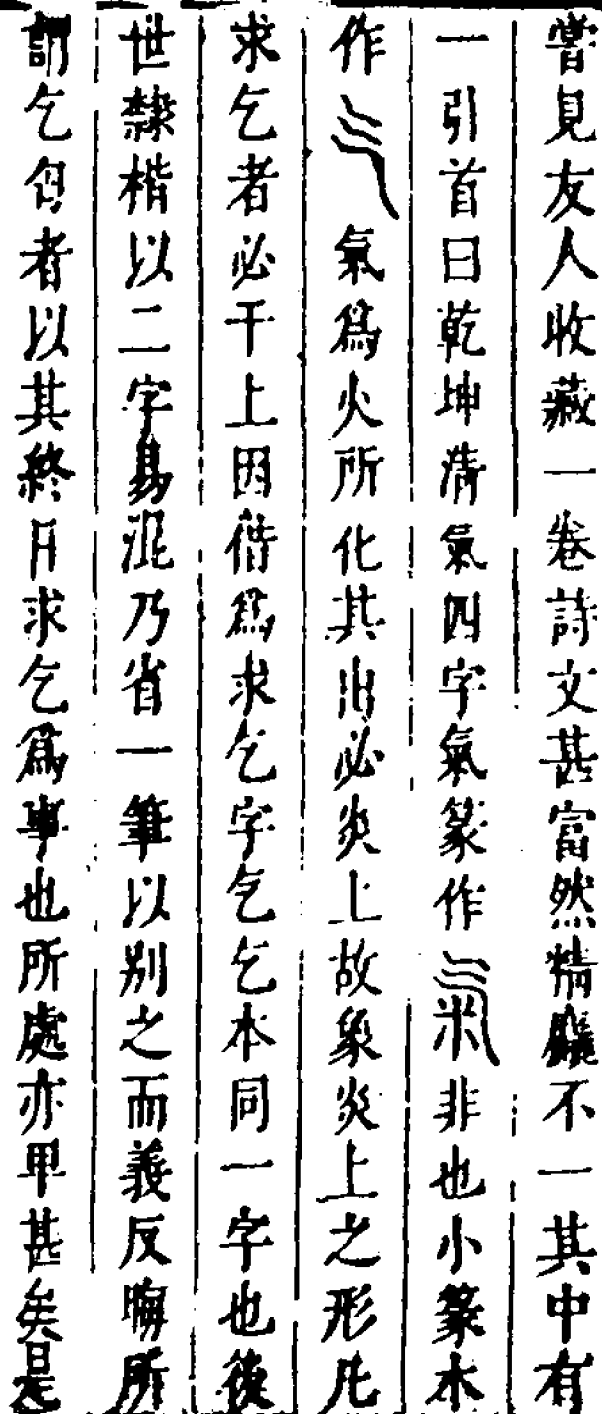 嘗見友人收藏一卷詩文甚富然精麤不一其中有
一引首曰乾坤清氣四字氣篆作氣非也小篆本
作气氣爲火所化其出必炎上故象炎上之形凡
求乞者必干上因借爲求乞字气乞本同一字也後
世隸楷以二字易混乃省一筆以别之而義反晦所
謂乞匄者以其終日求乞爲事也所處亦甲甚矣是